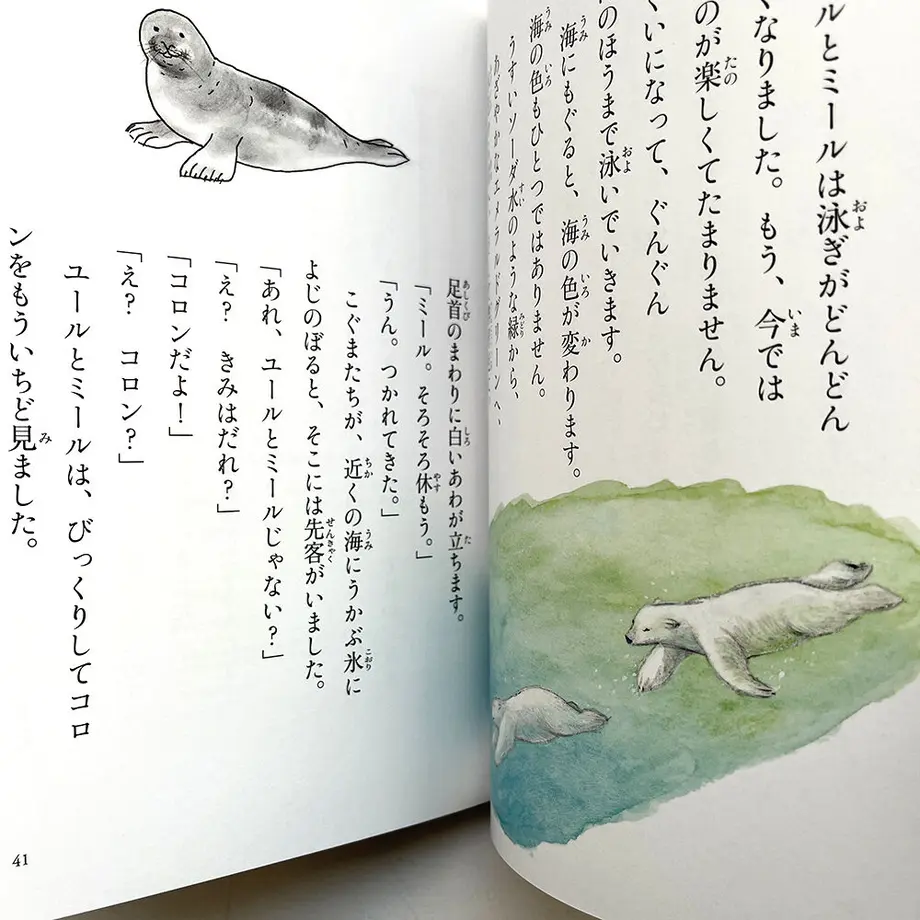 ルとミールは泳ぎがどんどん
くなりました。もう、今では
のが楽しくてたまりません。
くいになって、ぐんぐん
のほうまで泳いでいきます。
海にもぐると、海の色が変わります。
海の色もひとつではありません。
うすいソーダ水のような緑から、
あざやかなエメラルドグリーンへ、
足首のまわりに白いあわが立ちます。
「ミール。そろそろ休もう。」
「うん。つかれてきた。」
こぐまたちが、近くの海にうかぶ氷に
よじのぼると、そこには先客がいました。
「あれ、ユールとミールじゃない？」
「え？　きみはだれ？」
「コロンだよ！」
「え？　コロン？」
ユールとミールは、びっくりしてコロ
ンをもういちど見ました。
41